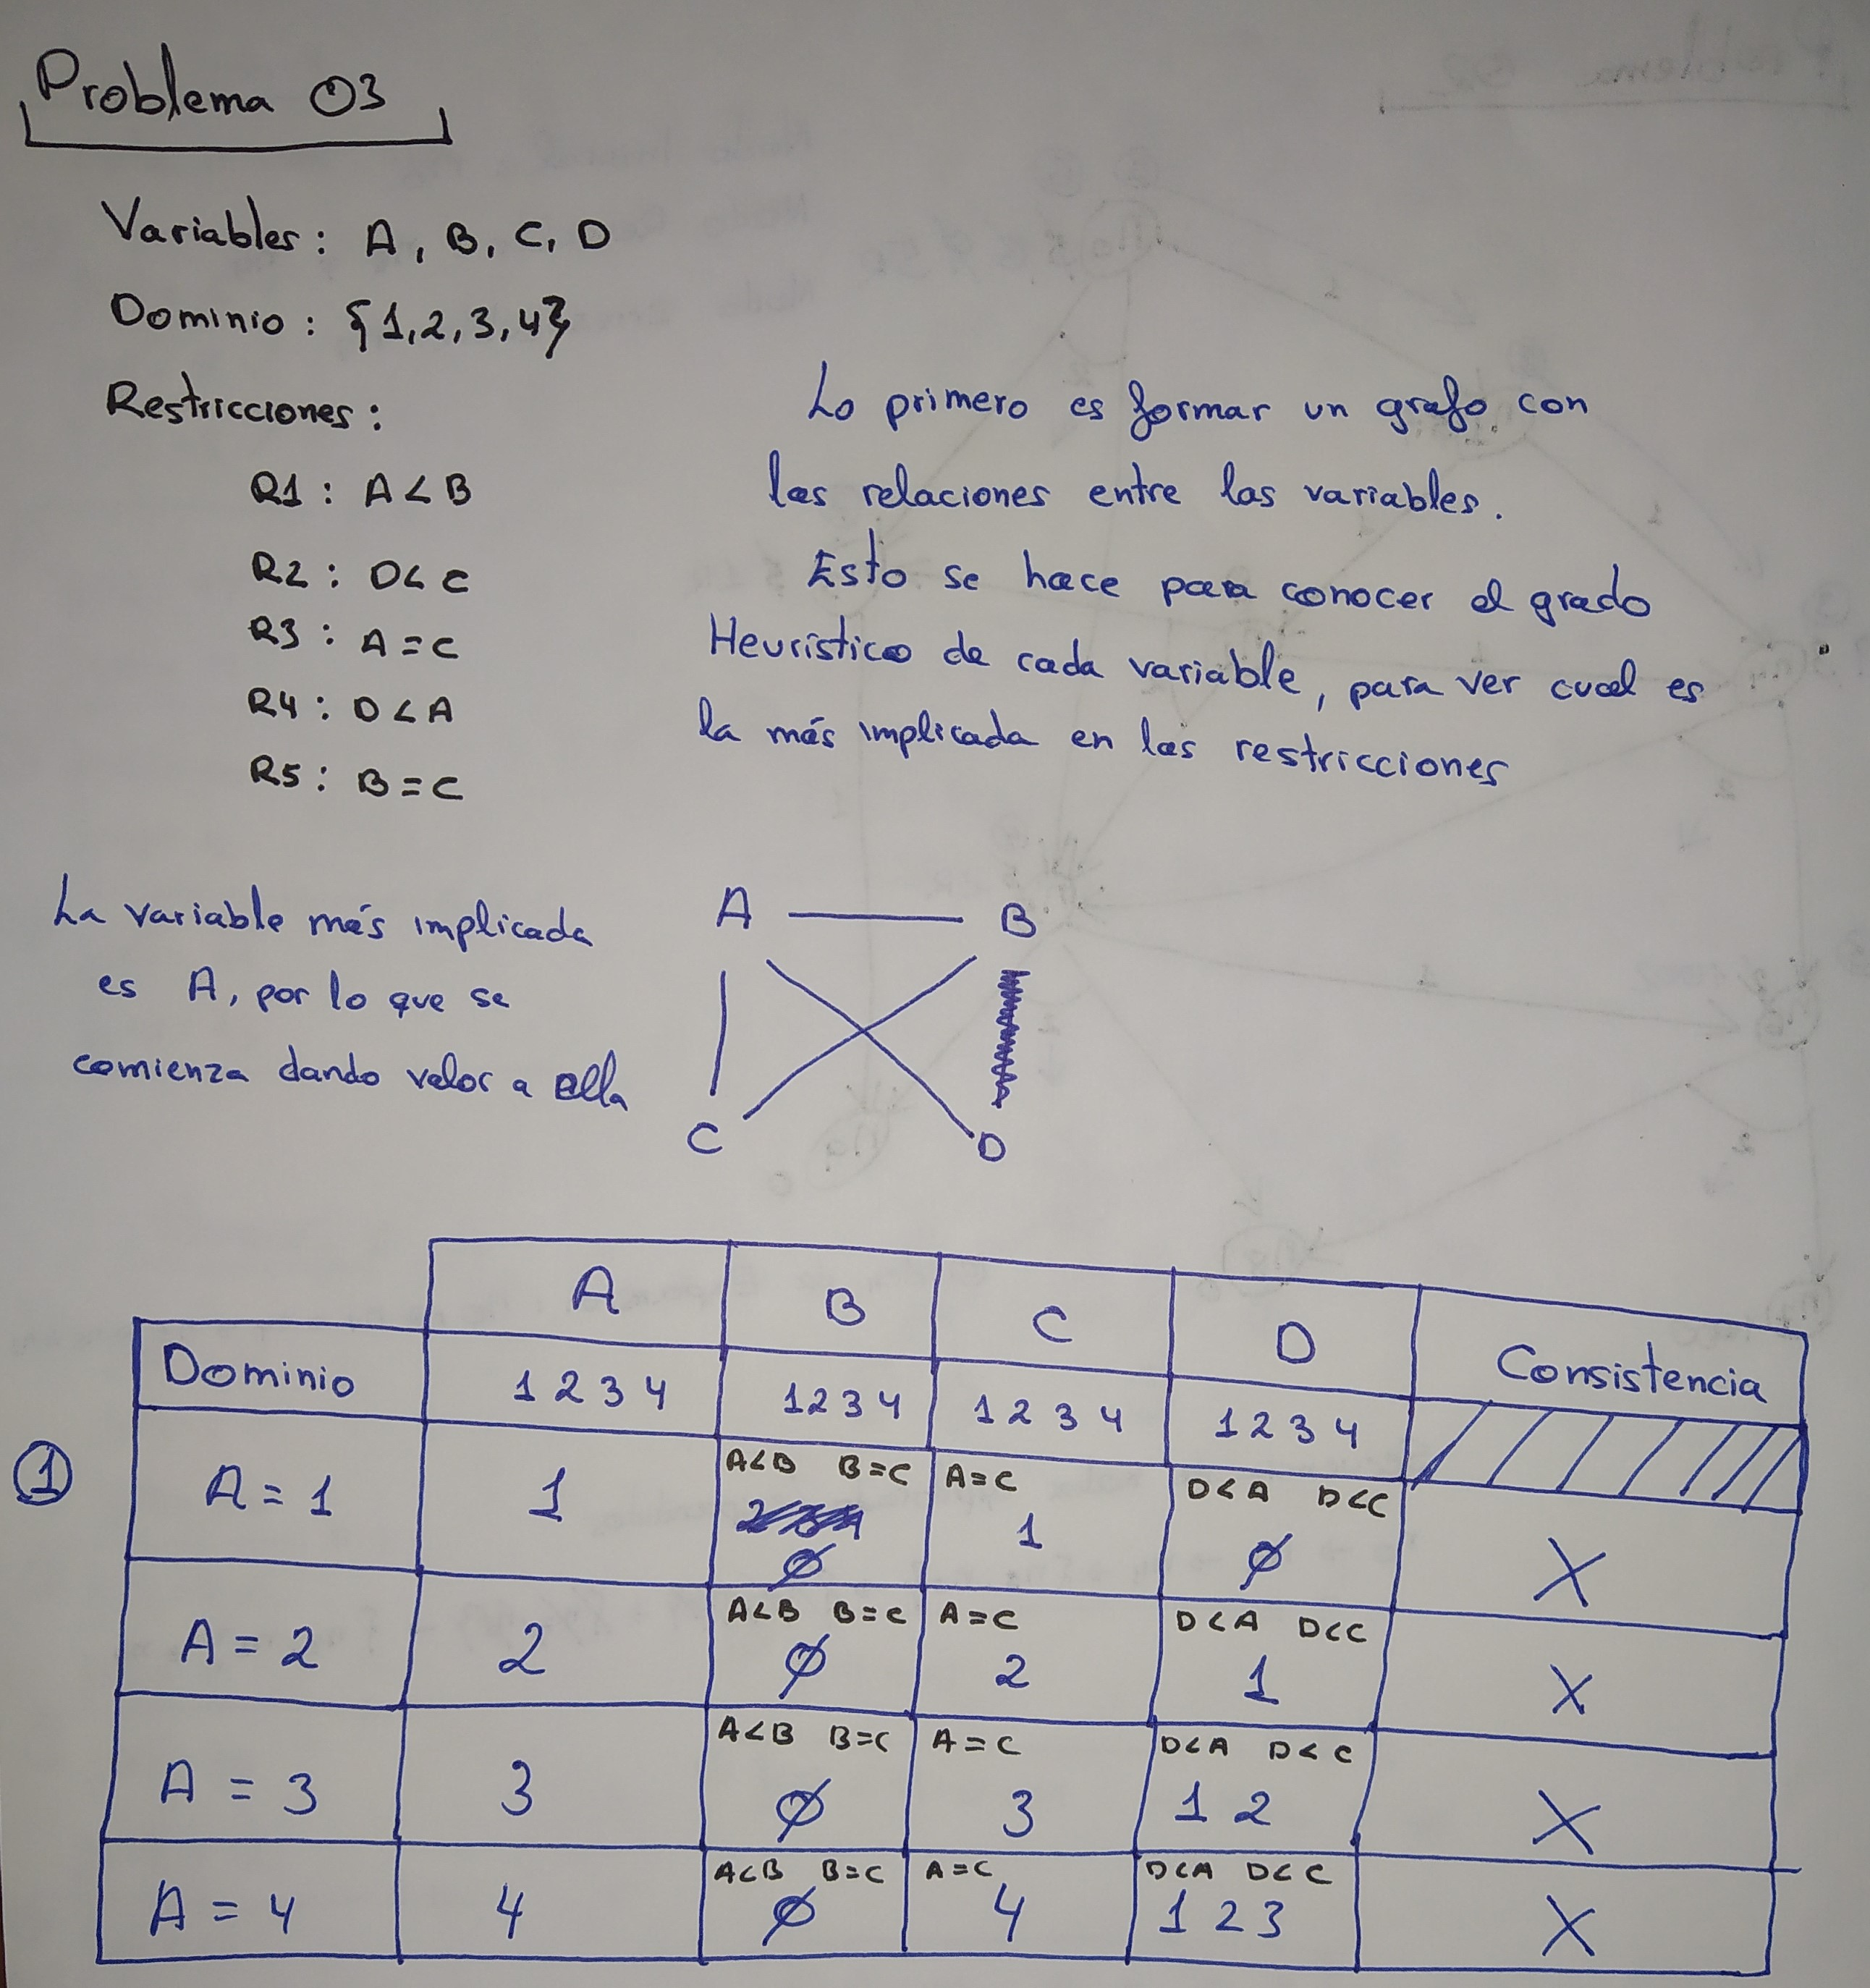 Problema 03
Variables: A, B, C, D
Dominio: {1,2,3,4}
Restricciones:
R1: A<B
R2: D<C
R3: A=C
R4: D<A
R5: B=C
Lo primero es formar un grafo con
las relaciones entre las variables.
Esto se hace para conocer el grado
Heurístico de cada variable, para ver cual es
la más implicada en las restricciones
La variable más implicada
es A, por lo que se
comienza dando valor a ella
A B
C D
A B C D Consistencia
Dominio 1 2 3 4 1 2 3 4 1 2 3 4 1 2 3 4
A<B B=C A=C D<A D<C
① A = 1 1 Ø 1 Ø X
A<B B=C A=C D<A D<C
A = 2 2 Ø 2 1 X
A<B B=C A=C D<A D<C
A = 3 3 Ø 3 1 2 X
A<B B=C A=C D<A D<C
A = 4 4 Ø 4 1 2 3 X